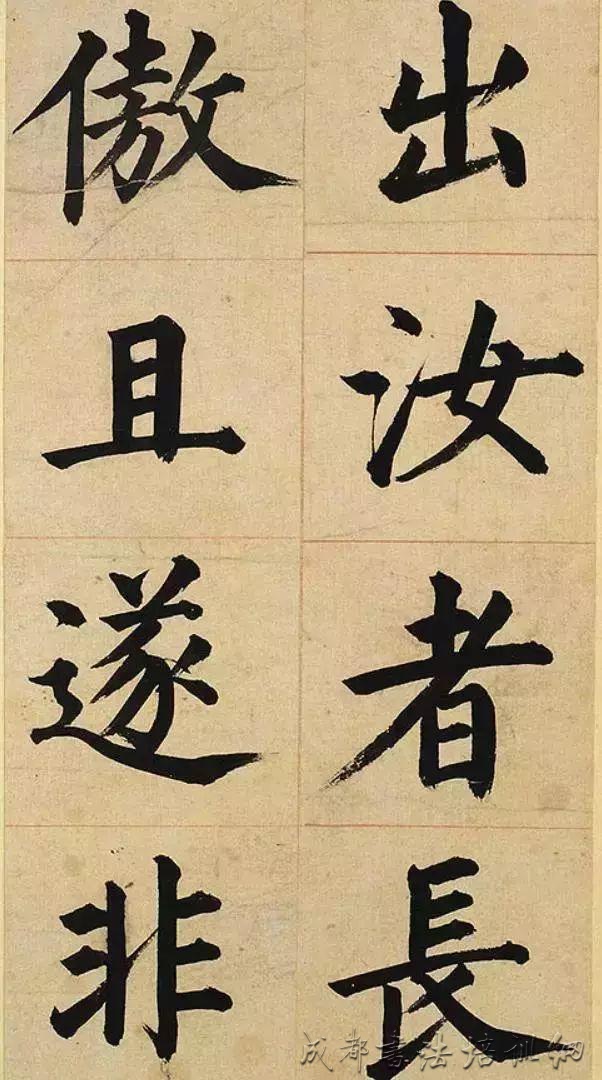 出汝者長
傲且遂非
成都书法培训网